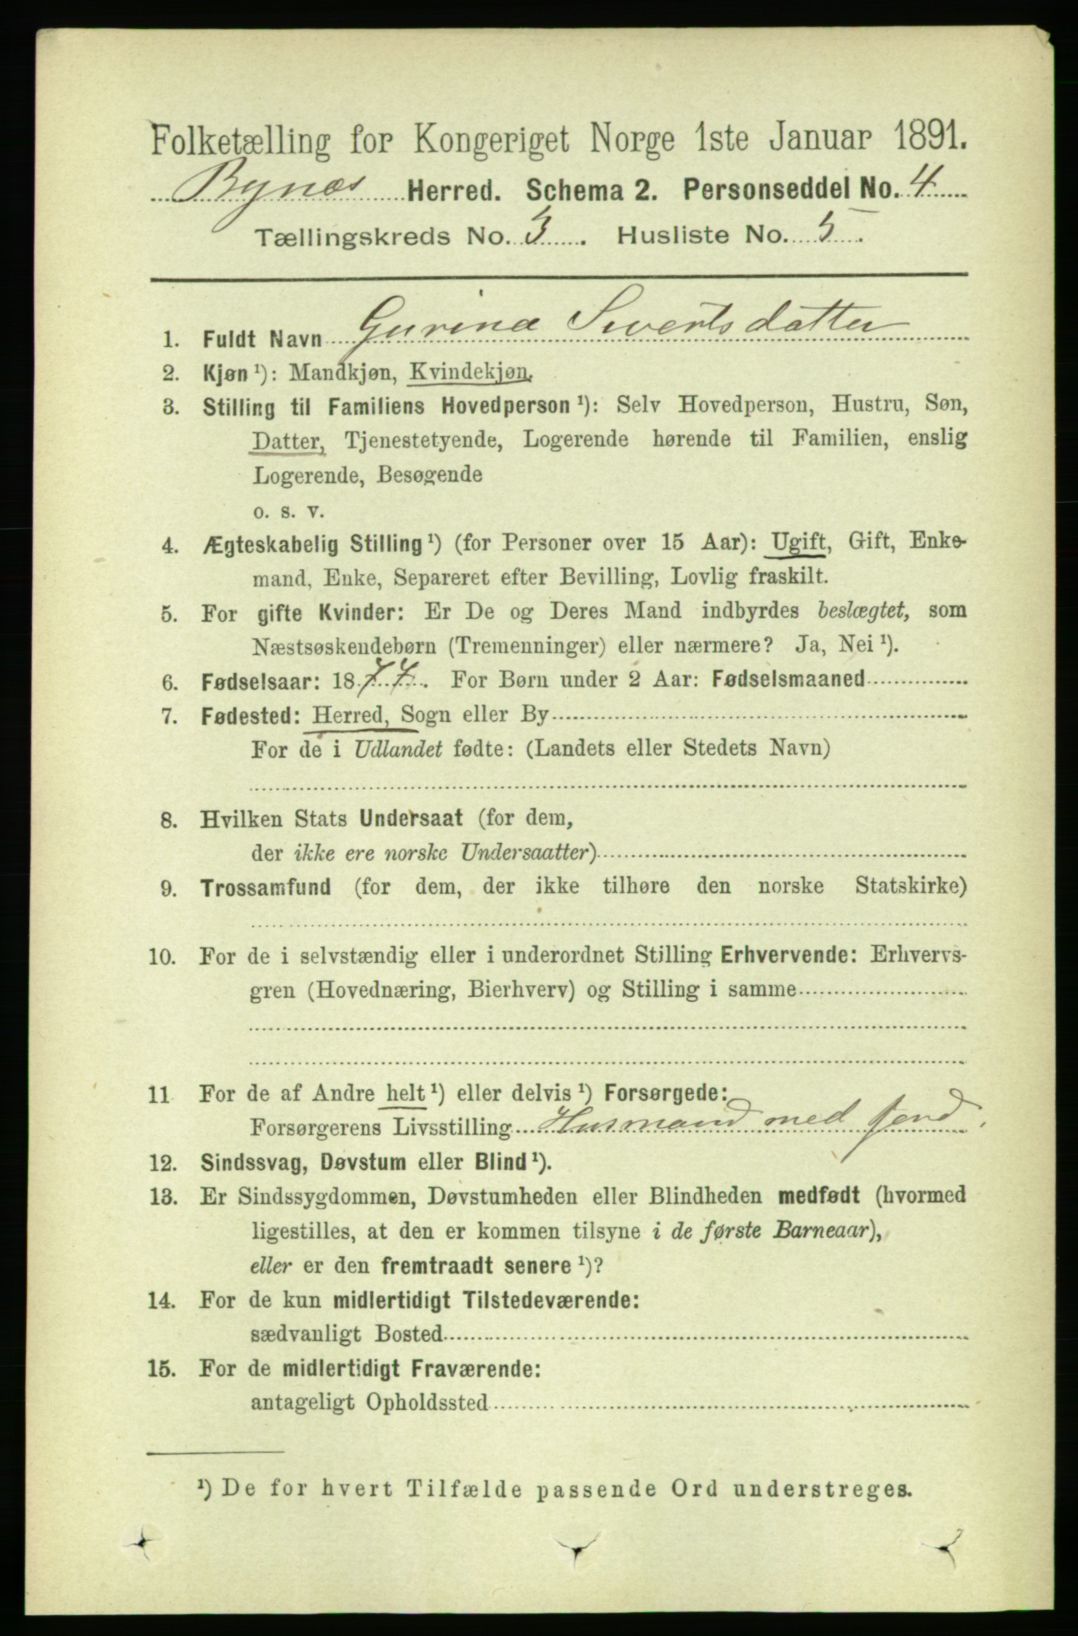 Folketælling for Kongeriget Norge 1ste Januar 1891.
Bynæs Herred. Schema 2. Personseddel No. 4
Tællingskreds No. 3. Husliste No. 5.
1. Fuldt Navn Gurina Sivertsdatter
2. Kjøn ¹): Mandkjøn, Kvindekjøn.
3. Stilling til Familiens Hovedperson ¹): Selv Hovedperson, Hustru, Søn,
Datter, Tjenestetyende, Logerende hørende til Familien, enslig
Logerende, Besøgende
o. s. v.
4. Ægteskabelig Stilling ¹) (for Personer over 15 Aar): Ugift, Gift, Enke-
mand, Enke, Separeret efter Bevilling, Lovlig fraskilt.
5. For gifte Kvinder: Er De og Deres Mand indbyrdes beslægtet, som
Næstsøskendebørn (Tremenninger) eller nærmere? Ja, Nei ¹).
6. Fødselsaar: 1877. For Børn under 2 Aar: Fødselsmaaned
7. Fødested: Herred, Sogn eller By
For de i Udlandet fødte: (Landets eller Stedets Navn)
8. Hvilken Stats Undersaat (for dem,
der ikke ere norske Undersaatter)
9. Trossamfund (for dem, der ikke tilhøre den norske Statskirke)
10. For de i selvstændig eller i underordnet Stilling Erhvervende: Erhvervs-
gren (Hovednæring, Bierhverv) og Stilling i samme
11 For de af Andre helt ¹) eller delvis ¹) Forsørgede:
Forsørgerens Livsstilling Husmand med jord.
12. Sindssvag, Døvstum eller Blind ¹).
13. Er Sindssygdommen, Døvstumheden eller Blindheden medfødt (hvormed
ligestilles, at den er kommen tilsyne i de første Barneaar),
eller er den fremtraadt senere ¹)?
14. For de kun midlertidigt Tilstedeværende:
sædvanligt Bosted
15. For de midlertidigt Fraværende:
antageligt Opholdssted
¹) De for hvert Tilfælde passende Ord understreges.